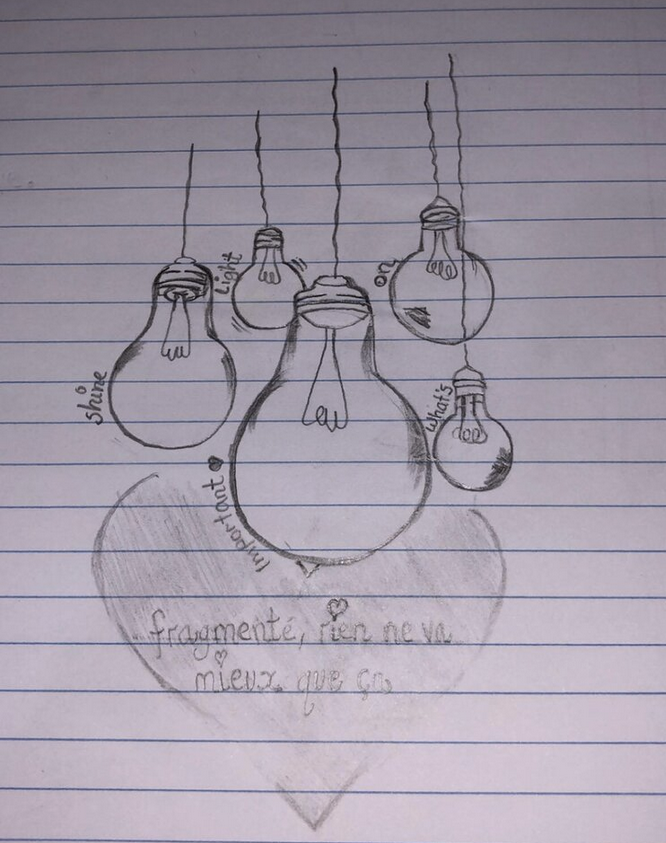 shine
Light
on
what's
important
fragmenté, rien ne va
mieux que ça